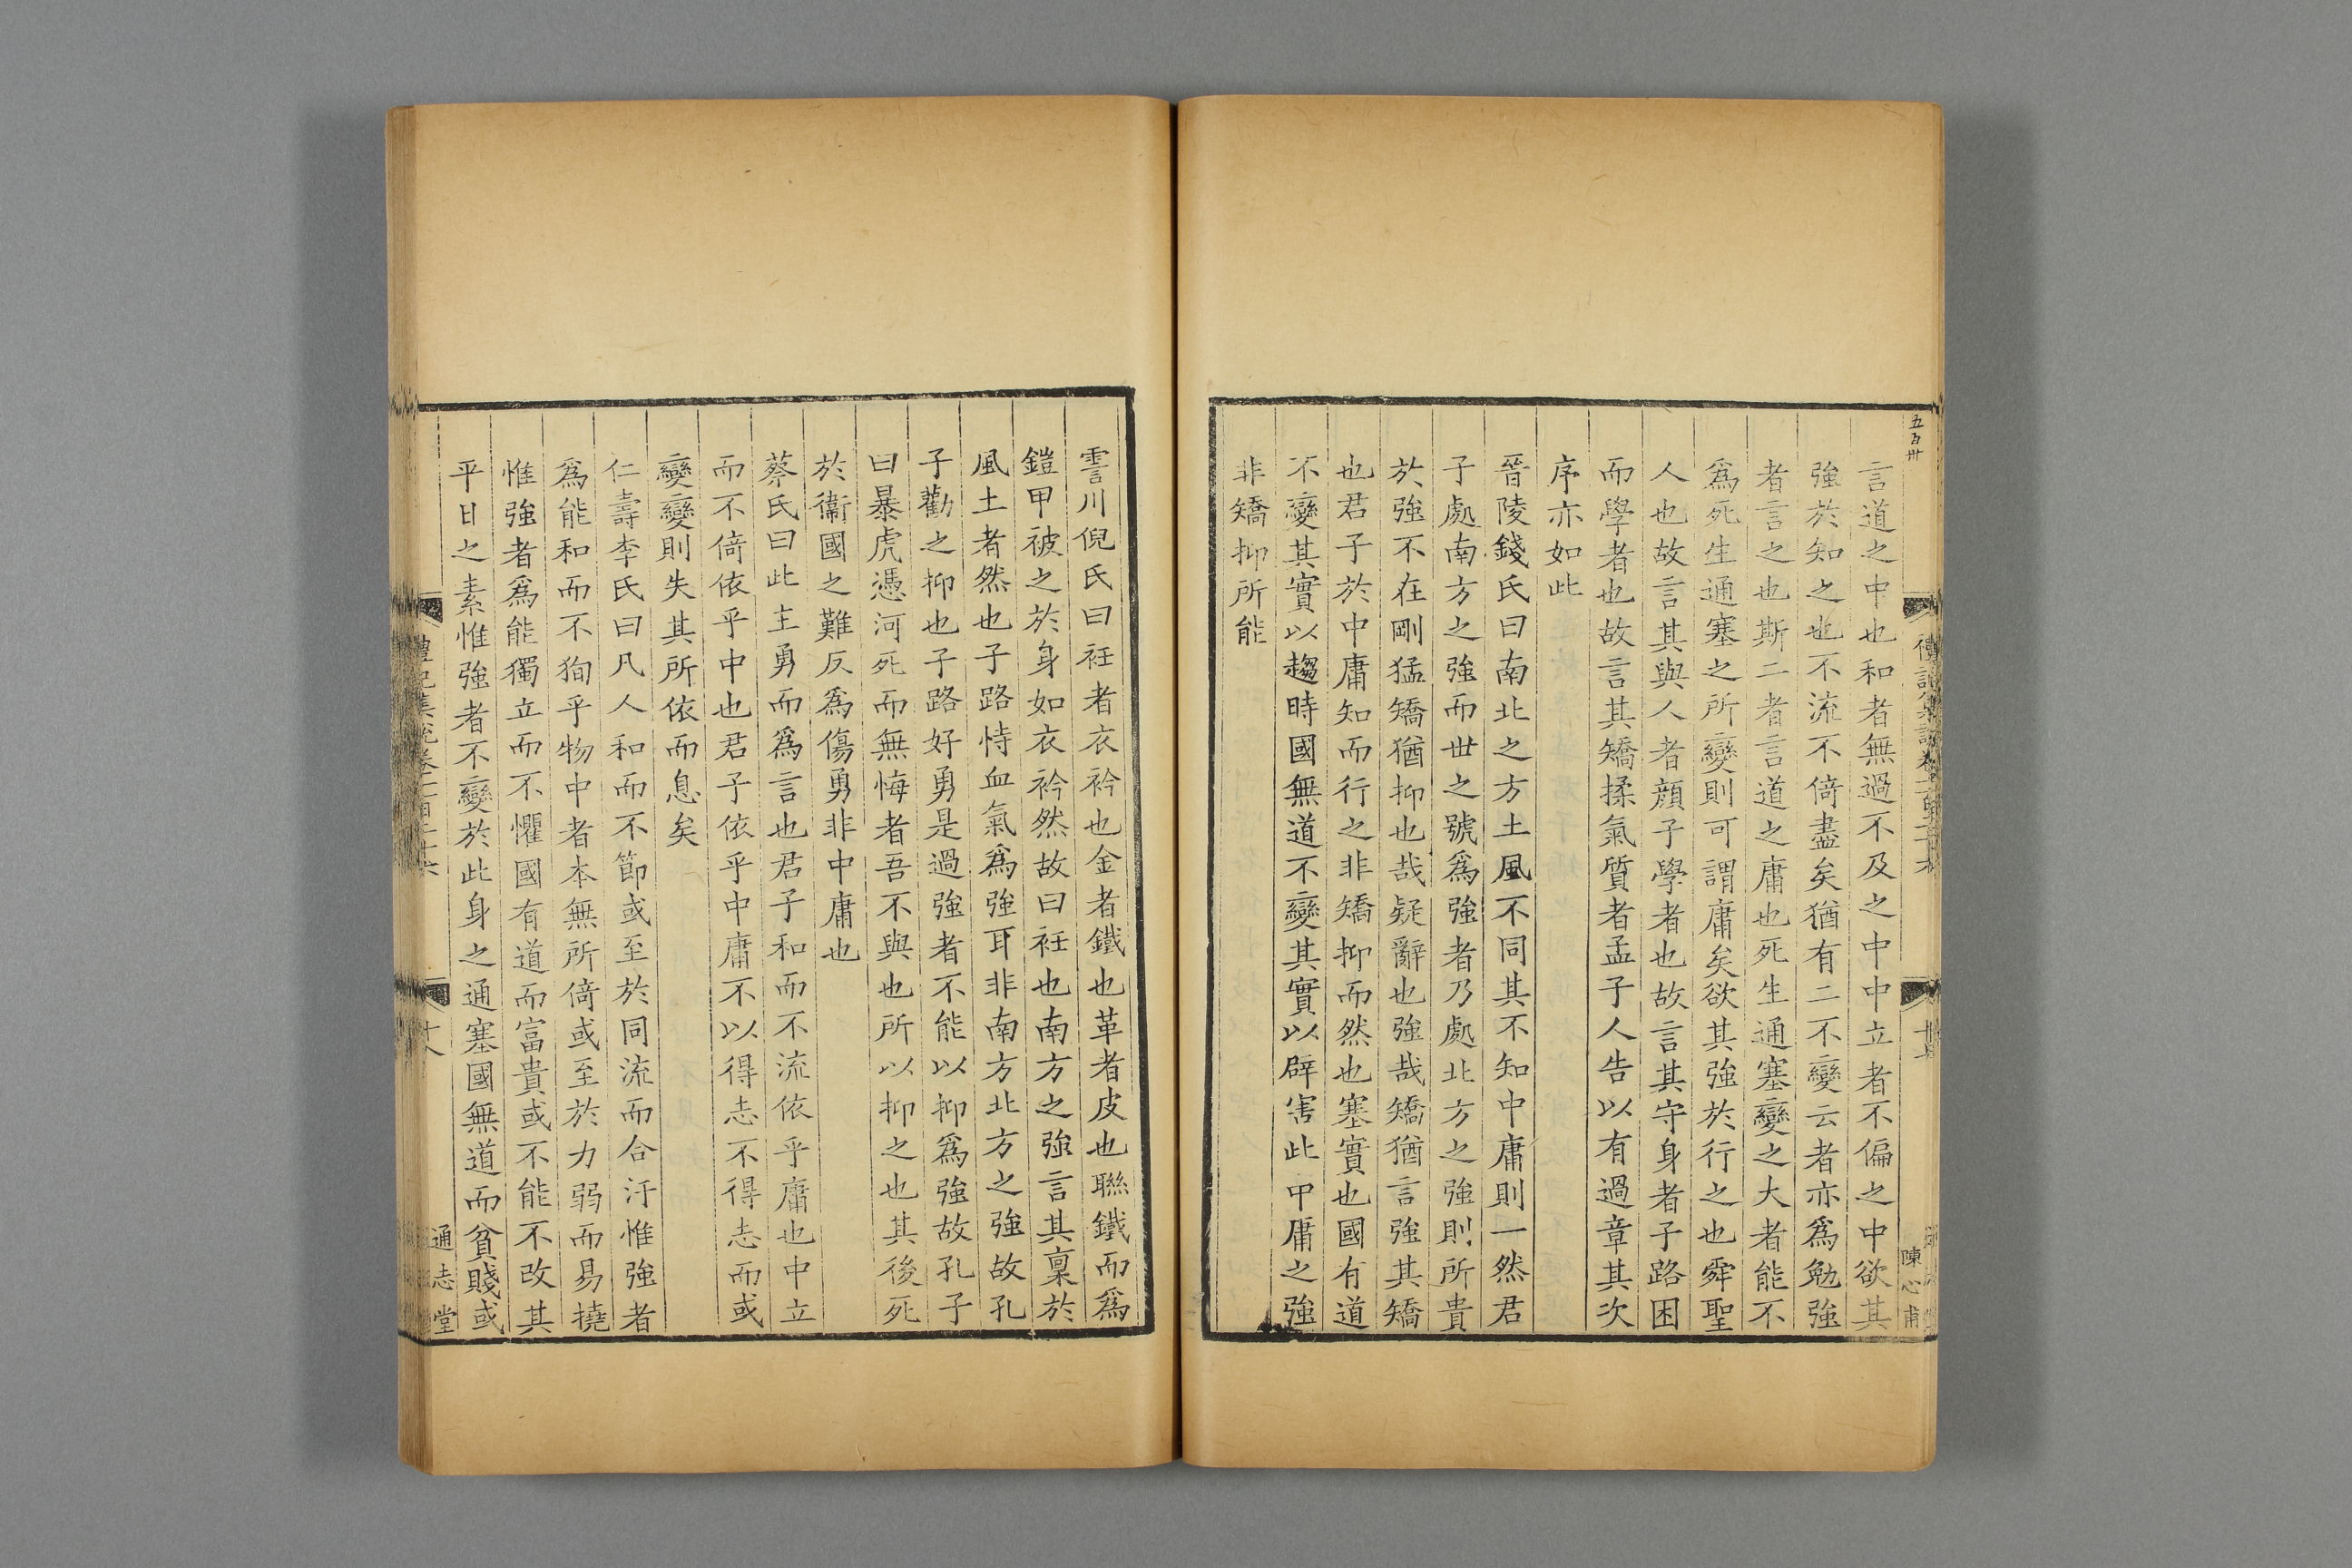 五百卅
言道之中也和者無過不及之中中立者不偏之中欲其
強於知之也不流不倚盡矣猶有二不變云者亦爲勉強
者言之也斯二者言道之庸也死生通塞變之大者能不
爲死生通塞之所變則可謂庸矣欲其強於行之也舜聖
人也故言其與人者顔子學者也故言其守身者子路困
而學者也故言其矯揉氣質者孟子人告以有過章其次
序亦如此
晉陵錢氏曰南北之方土風不同其不知中庸則一然君
子處南方之強而世之號爲強者乃處北方之強則所貴
於強不在剛猛矯猶抑也哉疑辭也強哉矯猶言強其矯
也君子於中庸知而行之非矯抑而然也塞實也國有道
不變其實以趨時國無道不變其實以辟害此中庸之強
非矯抑所能
陳心甫
霅川倪氏曰衽者衣衿也金者鐵也革者皮也聯鐵而爲
鎧甲被之於身如衣衿然故曰衽也南方之強言其稟於
風土者然也子路恃血氣爲強耳非南方北方之強故孔
子勸之抑也子路好勇是過強者不能以抑爲強故孔子
曰暴虎憑河死而無悔者吾不與也所以抑之也其後死
於衞國之難反爲傷勇非中庸也
蔡氏曰此主勇而爲言也君子和而不流依乎庸也中立
而不倚依乎中也君子依乎中庸不以得志不得志而或
變變則失其所依而息矣
仁壽李氏曰凡人和而不節或至於同流而合汙惟強者
爲能和而不狥乎物中者本無所倚或至於力弱而易撓
惟強者爲能獨立而不懼國有道而富貴或不能不改其
平日之素惟強者不變於此身之通塞國無道而貧賤或
禮記集說卷一百二十六
十八
通志堂